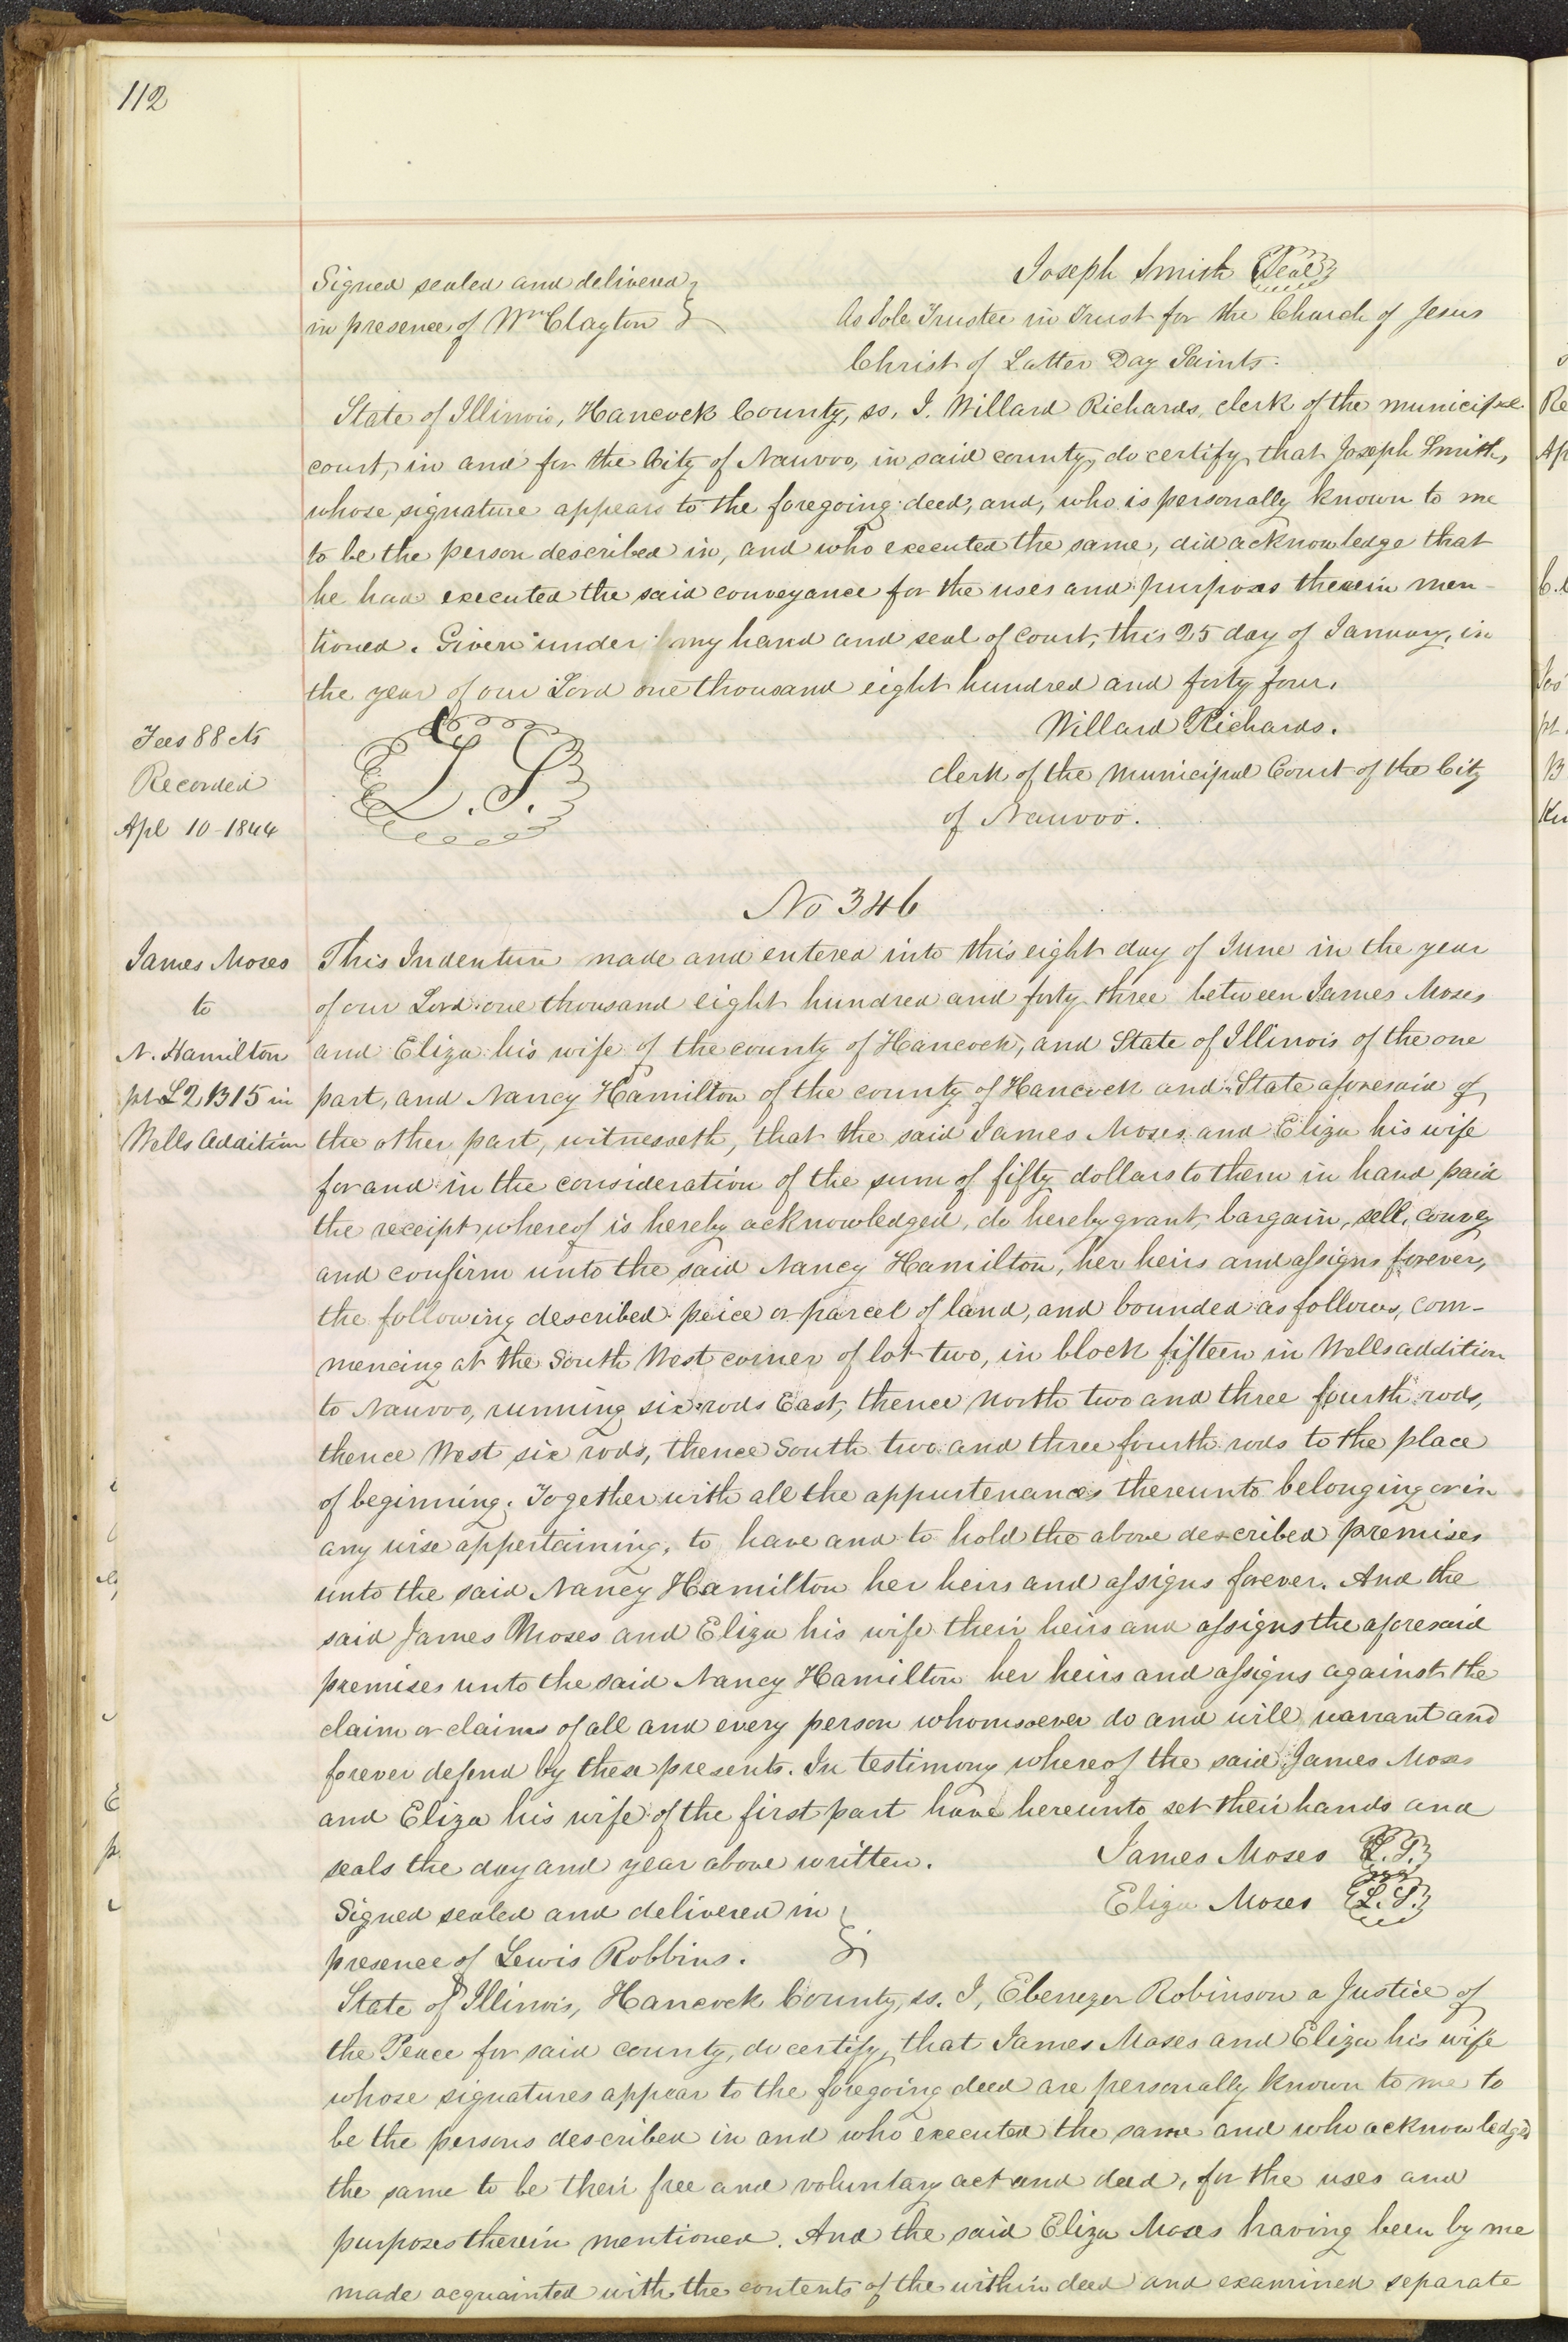 112
Signed sealed and delivered
in presence of Wm Clayton
Joseph Smith Seal
As Sole Trustee in Trust for the Church of Jesus
Christ of Latter Day Saints.
State of Illinois, Hancock County, ss. I. Willard Richards, clerk of the municipal
court, in and for the City of Nauvoo, in said county, do certify that Joseph Smith,
whose signature appears to the foregoing deed, and, who is personally known to me
to be the person described in, and who executed the same, did acknowledge that
he had executed the said conveyance for the uses and purposes therein men-
tioned. Given under my hand and seal of Court, this 25 day of January, in
the year of our Lord one thousand eight hundred and forty four.
Fees 88 cts
Recorded
Apl 10-1844
L.S.
Willard Richards.
clerk of the Municipal Court of the City
of Nauvoo.
No 346
James Moses
to
N. Hamilton
pt L2 B15 in
Wells Addition
This Indenture made and entered into this eight day of June in the year
of our Lord one thousand eight hundred and forty three between James Moses
and Eliza his wife of the county of Hancock, and State of Illinois of the one
part, and Nancy Hamilton of the county of Hancock and State aforesaid of
the other part, witnesseth, that the said James Moses and Eliza his wife
for and in the consideration of the sum of fifty dollars to them in hand paid
the receipt whereof is hereby acknowledged, do hereby grant, bargain, sell, convey
and confirm unto the said Nancy Hamilton, her heirs and assigns forever,
the following described peice or parcel of land, and bounded as follows, com-
mencing at the South West corner of lot two, in block fifteen in Wells addition
to Nauvoo, running six rods East, thence North two and three fourth rods,
thence West six rods, thence South two and three fourth rods to the place
of beginning. Together with all the appurtenances thereunto belonging or in
any wise appertaining, to have and to hold the above described premises
unto the said Nancy Hamilton her heirs and assigns forever. And the
said James Moses and Eliza his wife their heirs and assigns the aforesaid
premises unto the said Nancy Hamilton her heirs and assigns against the
claim or claims of all and every person whomsoever do and will warrant and
forever defend by these presents. In testimony whereof the said James Moses
and Eliza his wife of the first part have hereunto set their hands and
seals the day and year above written.
James Moses L.S.
Eliza Moses L.S.
Signed sealed and delivered in
presence of Lewis Robbins.
State of Illinois, Hancock County, ss. I, Ebenezer Robinson a Justice of
the Peace for said county, do certify, that James Moses and Eliza his wife
whose signatures appear to the foregoing deed are personally known to me to
be the persons described in and who executed the same and who acknowledged
the same to be their free and voluntary act and deed, for the uses and
purposes therein mentioned. And the said Eliza Moses having been by me
made acquainted with the contents of the within deed and examined separate